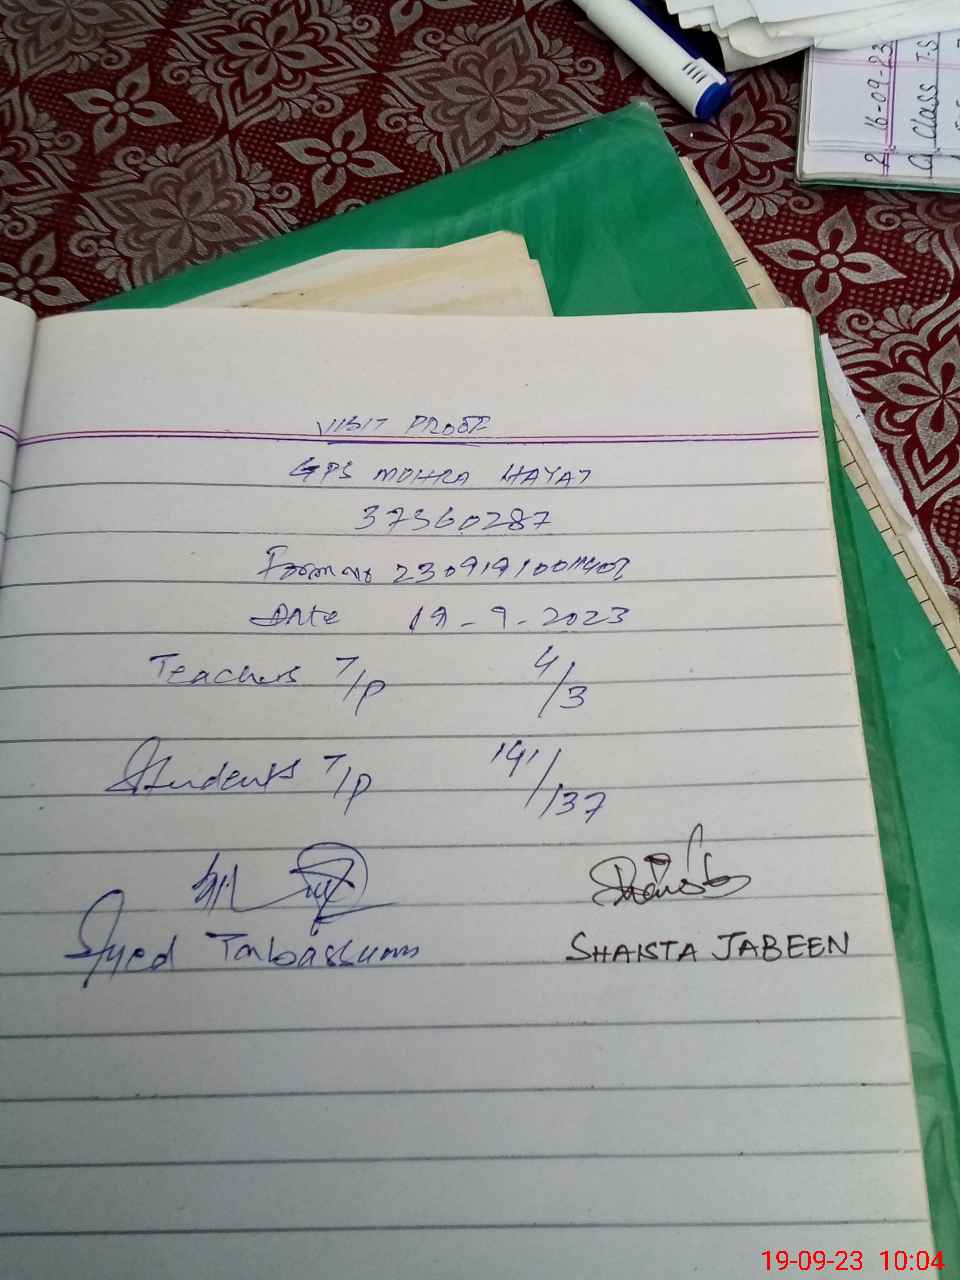 VISIT PROOF
GPS MOHRA HAYAT
37360287
Form no
Date 19-9-2023
Teachers T/P 4/3
Students T/P 141/137
Syed Tabassum
SHAISTA JABEEN
2 16-09-23
Class
19-09-23 10:04